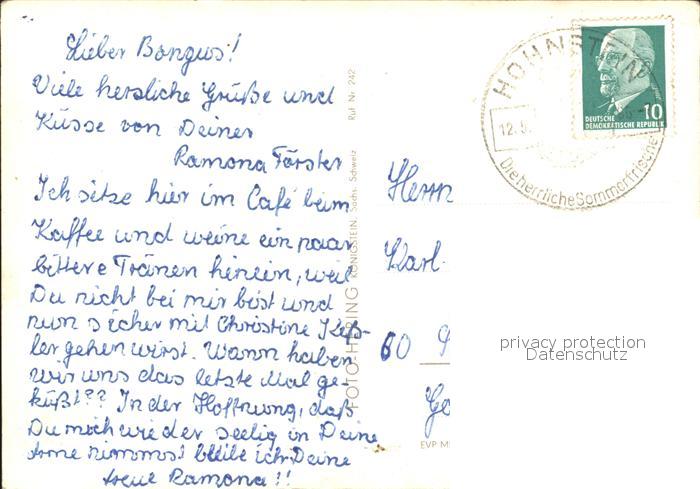 Lieber Bongus!
Viele herzliche Grüße und
Küsse von Deiner
Ramona Förster
Ich sitze hier im Café beim
Kaffee und weine ein paar
bittere Tränen hinein, weil
Du nicht bei mir bist und
nun sicher mit Christine Keß-
ler gehen wirst. Wann haben
wir uns das letzte Mal ge-
küßt?? In der Hoffnung, daß
Du mich wieder seelig in Deine
Arme nimmst bleibe ich Deine
treue Ramona!!
FOTO-HERING KÖNIGSTEIN Sächs. Schweiz Ruf Nr. 242
HOHNSTEIN
12.5.
Die herrliche Sommerfrische
10
DEUTSCHE
DEMOKRATISCHE REPUBLIK
Herrn
Karl-
60
EVP M
privacy protection
Datenschutz